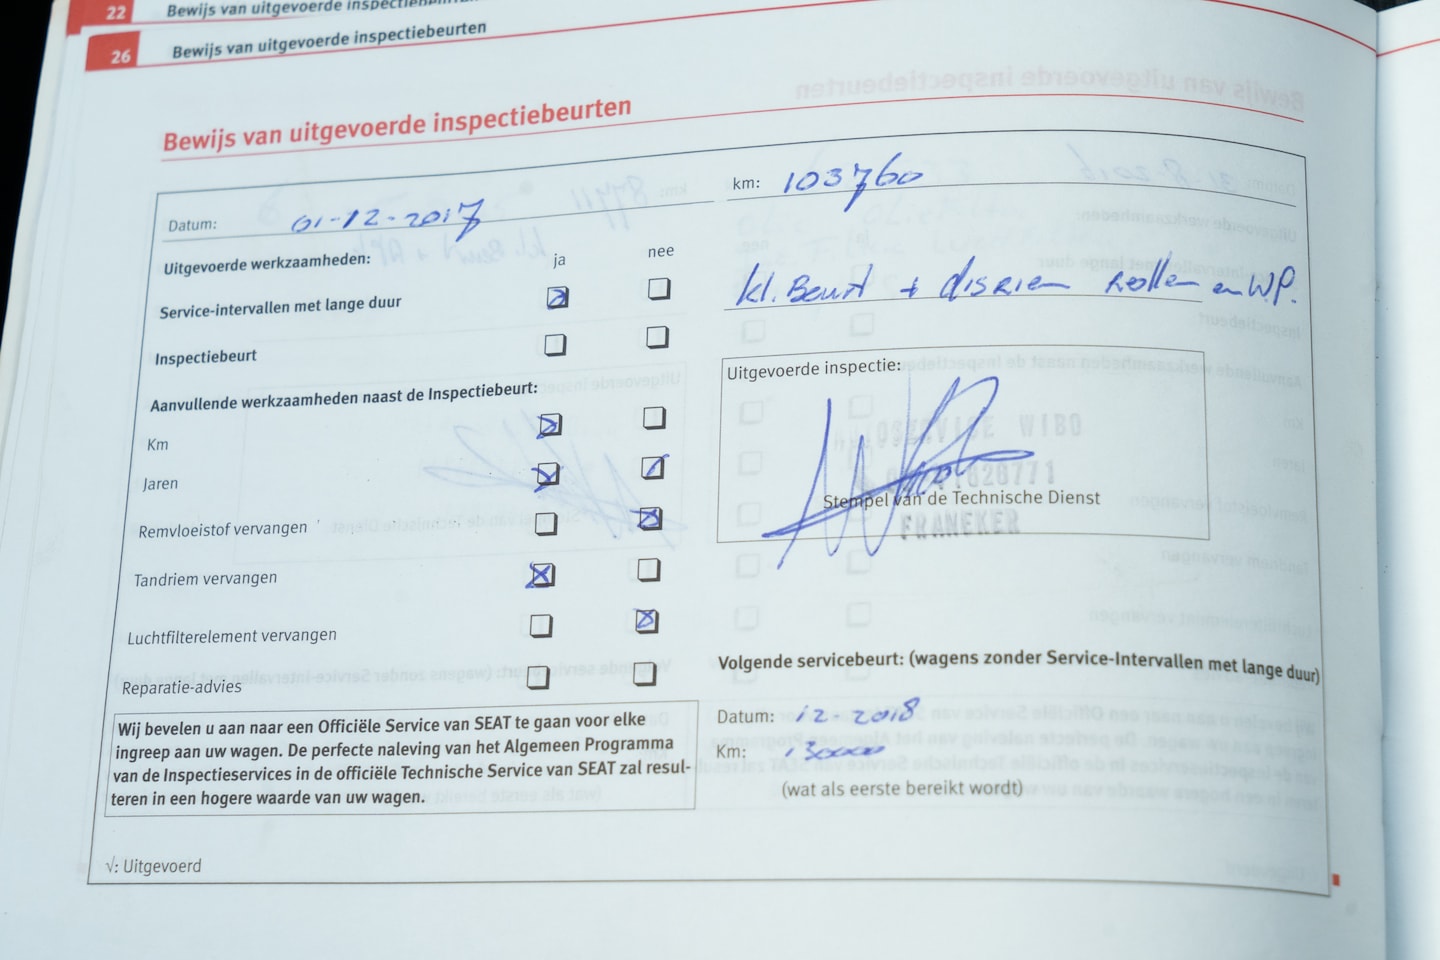 22 Bewijs van uitgevoerde
26 Bewijs van uitgevoerde inspectiebeurten
Bewijs van uitgevoerde inspectiebeurten
Datum: 01-12-2017
km: 103760
Uitgevoerde werkzaamheden: ja nee
Service-intervallen met lange duur
kl. Beurt + disriem rollen en W.P.
Inspectiebeurt
Uitgevoerde inspectie:
Aanvullende werkzaamheden naast de Inspectiebeurt:
Km
WIBO
Jaren
Stempel van de Technische Dienst
FRANEKER
Remvloeistof vervangen
Tandriem vervangen
Luchtfilterelement vervangen
Reparatie-advies
Volgende servicebeurt: (wagens zonder Service-Intervallen met lange duur)
Datum: 12-2018
Km: 130000
(wat als eerste bereikt wordt)
Wij bevelen u aan naar een Officiële Service van SEAT te gaan voor elke
ingreep aan uw wagen. De perfecte naleving van het Algemeen Programma
van de Inspectieservices in de officiële Technische Service van SEAT zal resul-
teren in een hogere waarde van uw wagen.
√: Uitgevoerd